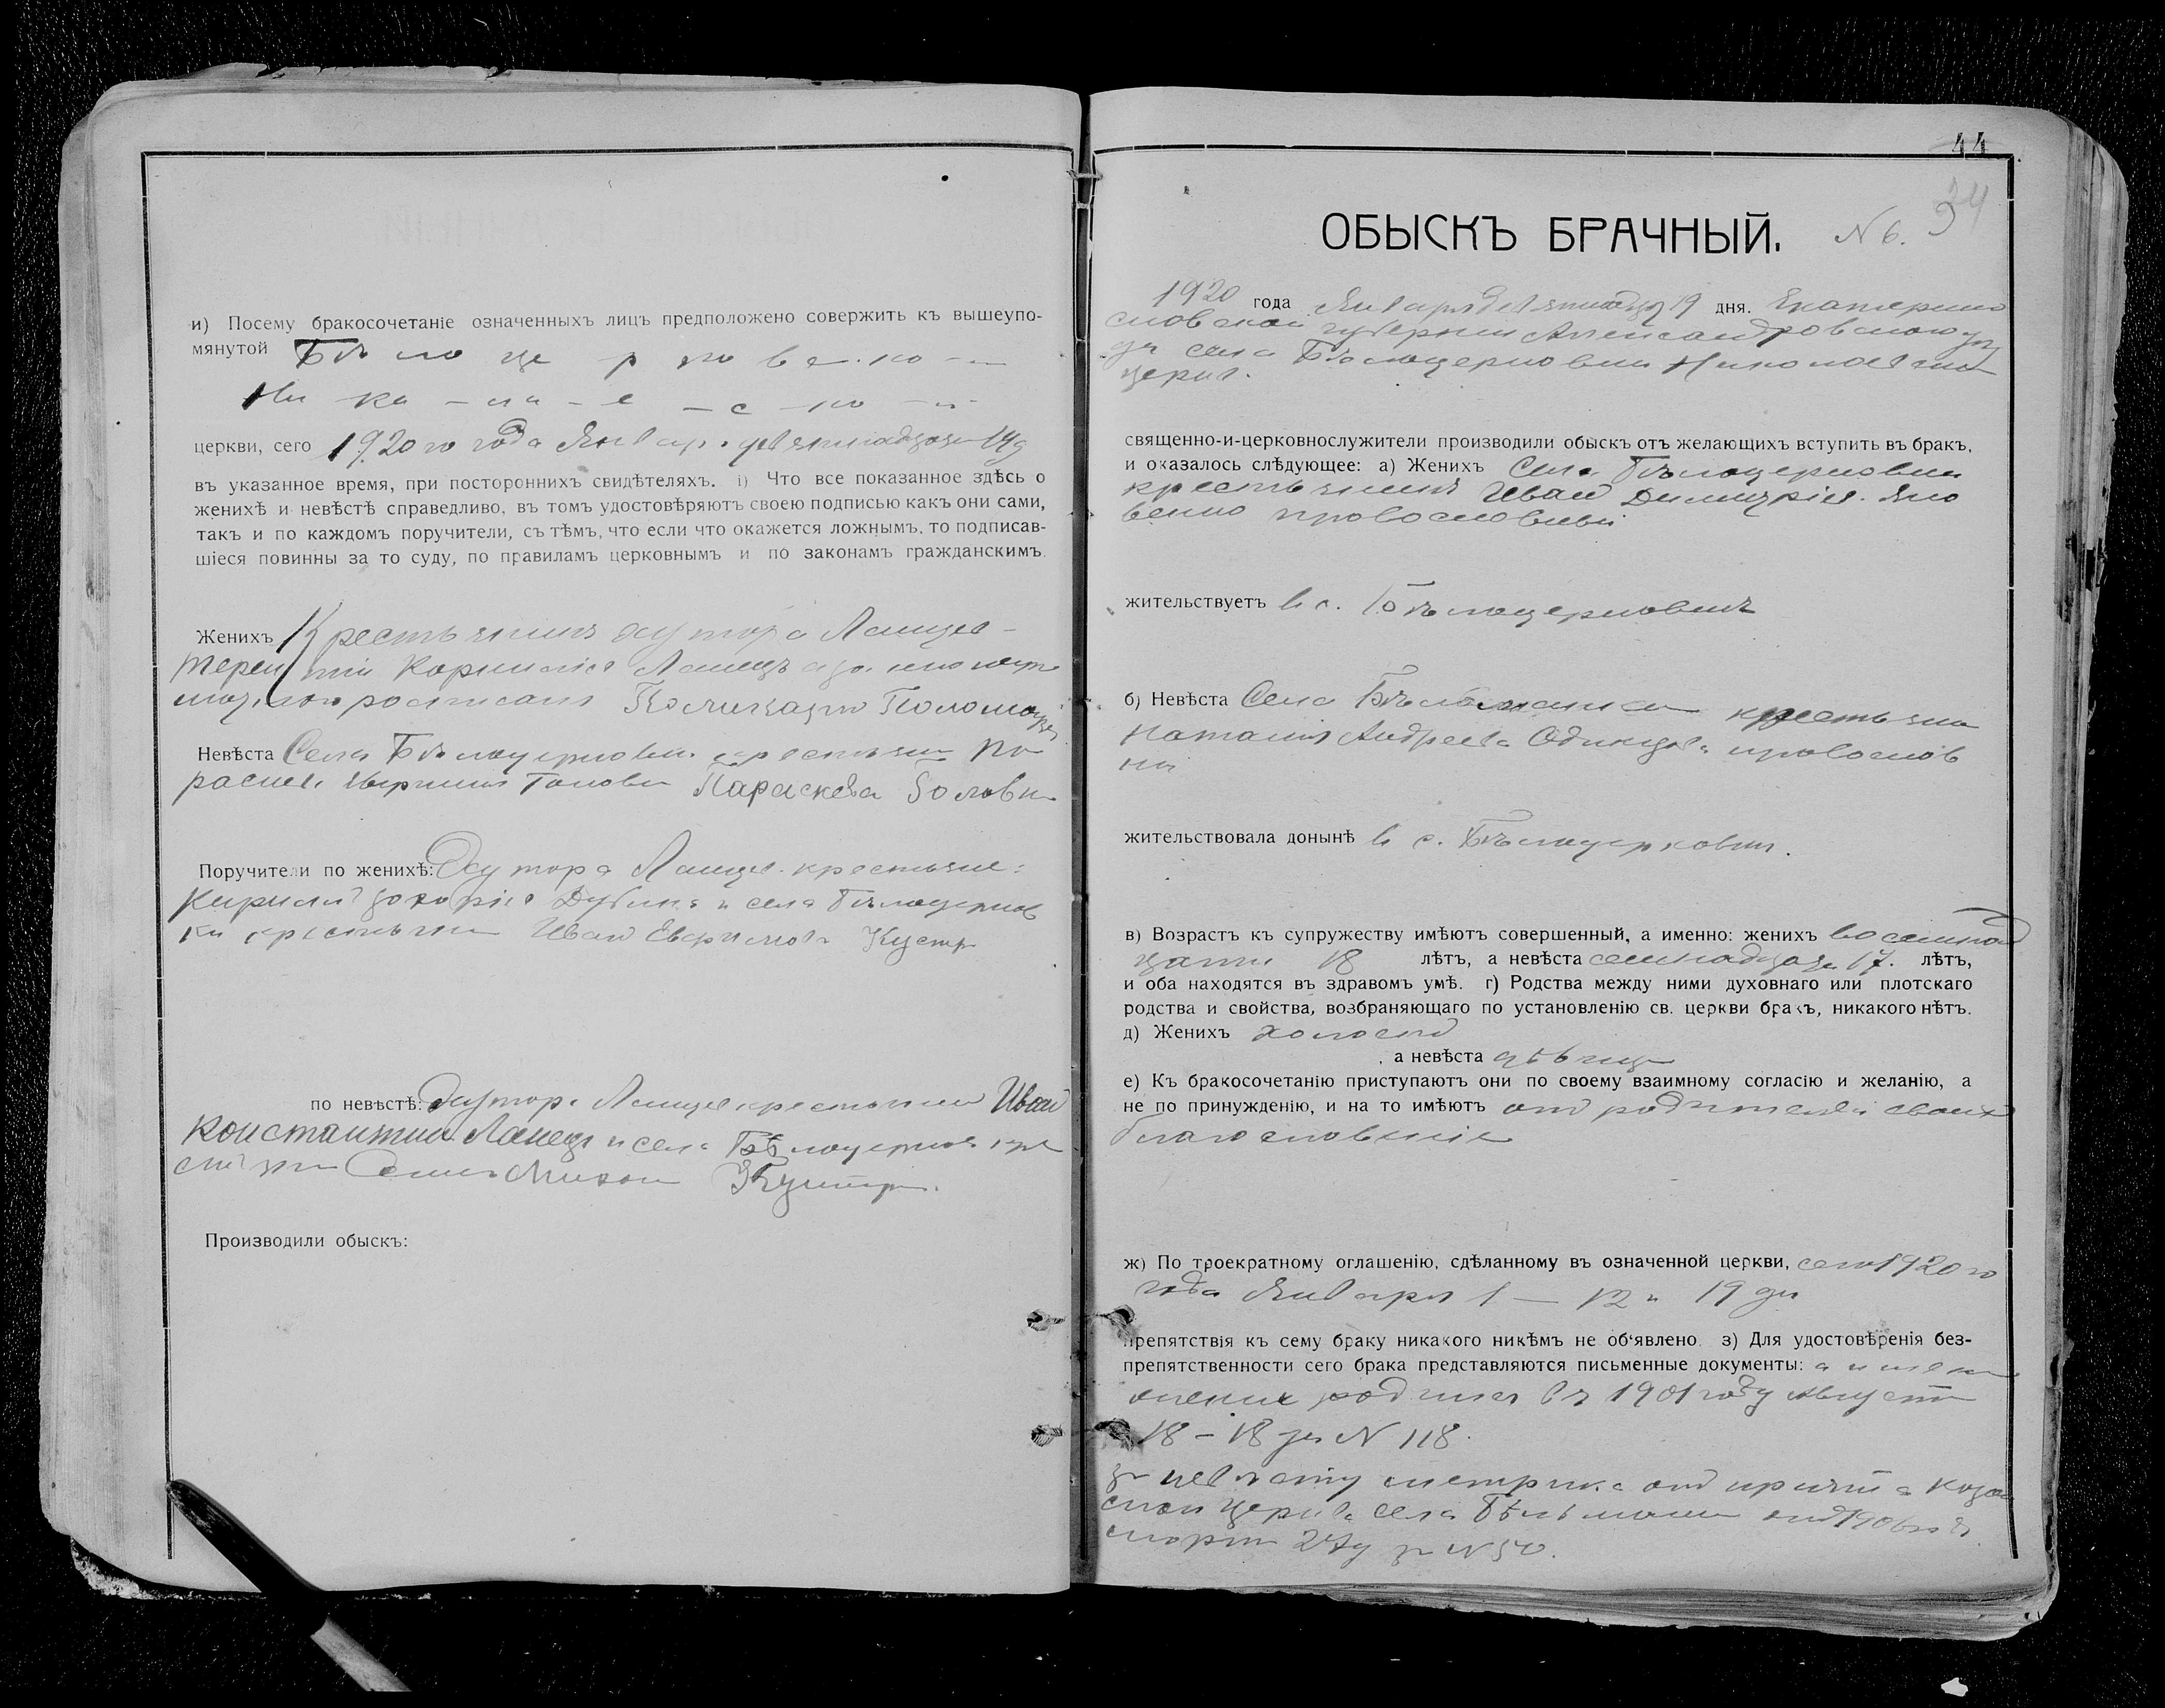 и) Посему бракосочетаніе означенныхъ лицъ предположено совержить къ вышеупо-
мянутой Бѣло це р ко в с ко
Ни ко ла е с ко
церкви, сего 1920 го года Январ. девятнадцаты 19 д
въ указанное время, при постороннихъ свидѣтеляхъ. і) Что все показанное здѣсь о
женихѣ и невѣстѣ справедливо, въ томъ удостовѣряютъ своею подписью какъ они сами,
такъ и по каждомъ поручители, съ тѣмъ, что если что окажется ложнымъ, то подписав-
шіеся повинны за то суду, по правиламъ церковнымъ и по законамъ гражданскимъ.
Женихъ Крестьянинъ хутора Ланцев
Терентій Корнилія Ланецъ а за
росписался
Невѣста Села Бѣлоцерковки крестьян Па
раскев. Параскева
Поручители по женихѣ: Хутора Ланцев. крестьяне:
Кирилл Захарія Дубина и села Бѣлоцерков
ки крестьянин Иван Евфимов Кустр
по невѣстѣ: Хутора Ланцев крестьянин Иван
Константин Ланецъ и села Бѣлоцерков кре
стьян
Производили обыскъ:
44
34
ОБЫСКЪ БРАЧНЫЙ. N 6.
1920 года Января девятнадца 19 дня. Екатерино
славской губерніи Александровскаго у
да села Бѣлоцерковки Николаевск
церкв.
священно-и-церковнослужители производили обыскъ отъ желающихъ вступить въ бракъ,
и оказалось слѣдующее: а) Женихъ Села Бѣлоцерковки
крестьянинъ Иван Димитрія. Яко
венко православный
жительствуетъ в с. Бѣлоцерковкѣ
б) Невѣста Села Бѣльманки крестьян
Наталія Андреева Одинцова православ
на
жительствовала донынѣ в с. Бѣлоцерковки.
в) Возрастъ къ супружеству имѣютъ совершенный, а именно: женихъ восемнад
цати 18 лѣтъ, а невѣста семнадцати 17. лѣтъ,
и оба находятся въ здравомъ умѣ. г) Родства между ними духовнаго или плотскаго
родства и свойства, возбраняющаго по установленію св. церкви бракъ, никакого нѣтъ.
д) Женихъ холост
, а невѣста дѣвица
е) Къ бракосочетанію приступаютъ они по своему взаимному согласію и желанію, а
не по принужденію, и на то имѣютъ от родителей своих
благословеніе
ж) По троекратному оглашенію, сдѣланному въ означенной церкви, сего 1920 го
года Января 1 — 12 и 19 дн
препятствія къ сему браку никакого никѣмъ не об'явлено. з) Для удостовѣренія без-
препятственности сего брака представляются письменные документы: а имен
жених родился въ 1901 году Августа
18 – 18 за N 118.
за невѣсту метрика от причта Казан
ской церкв села Бѣльманки от
марта за N 50.